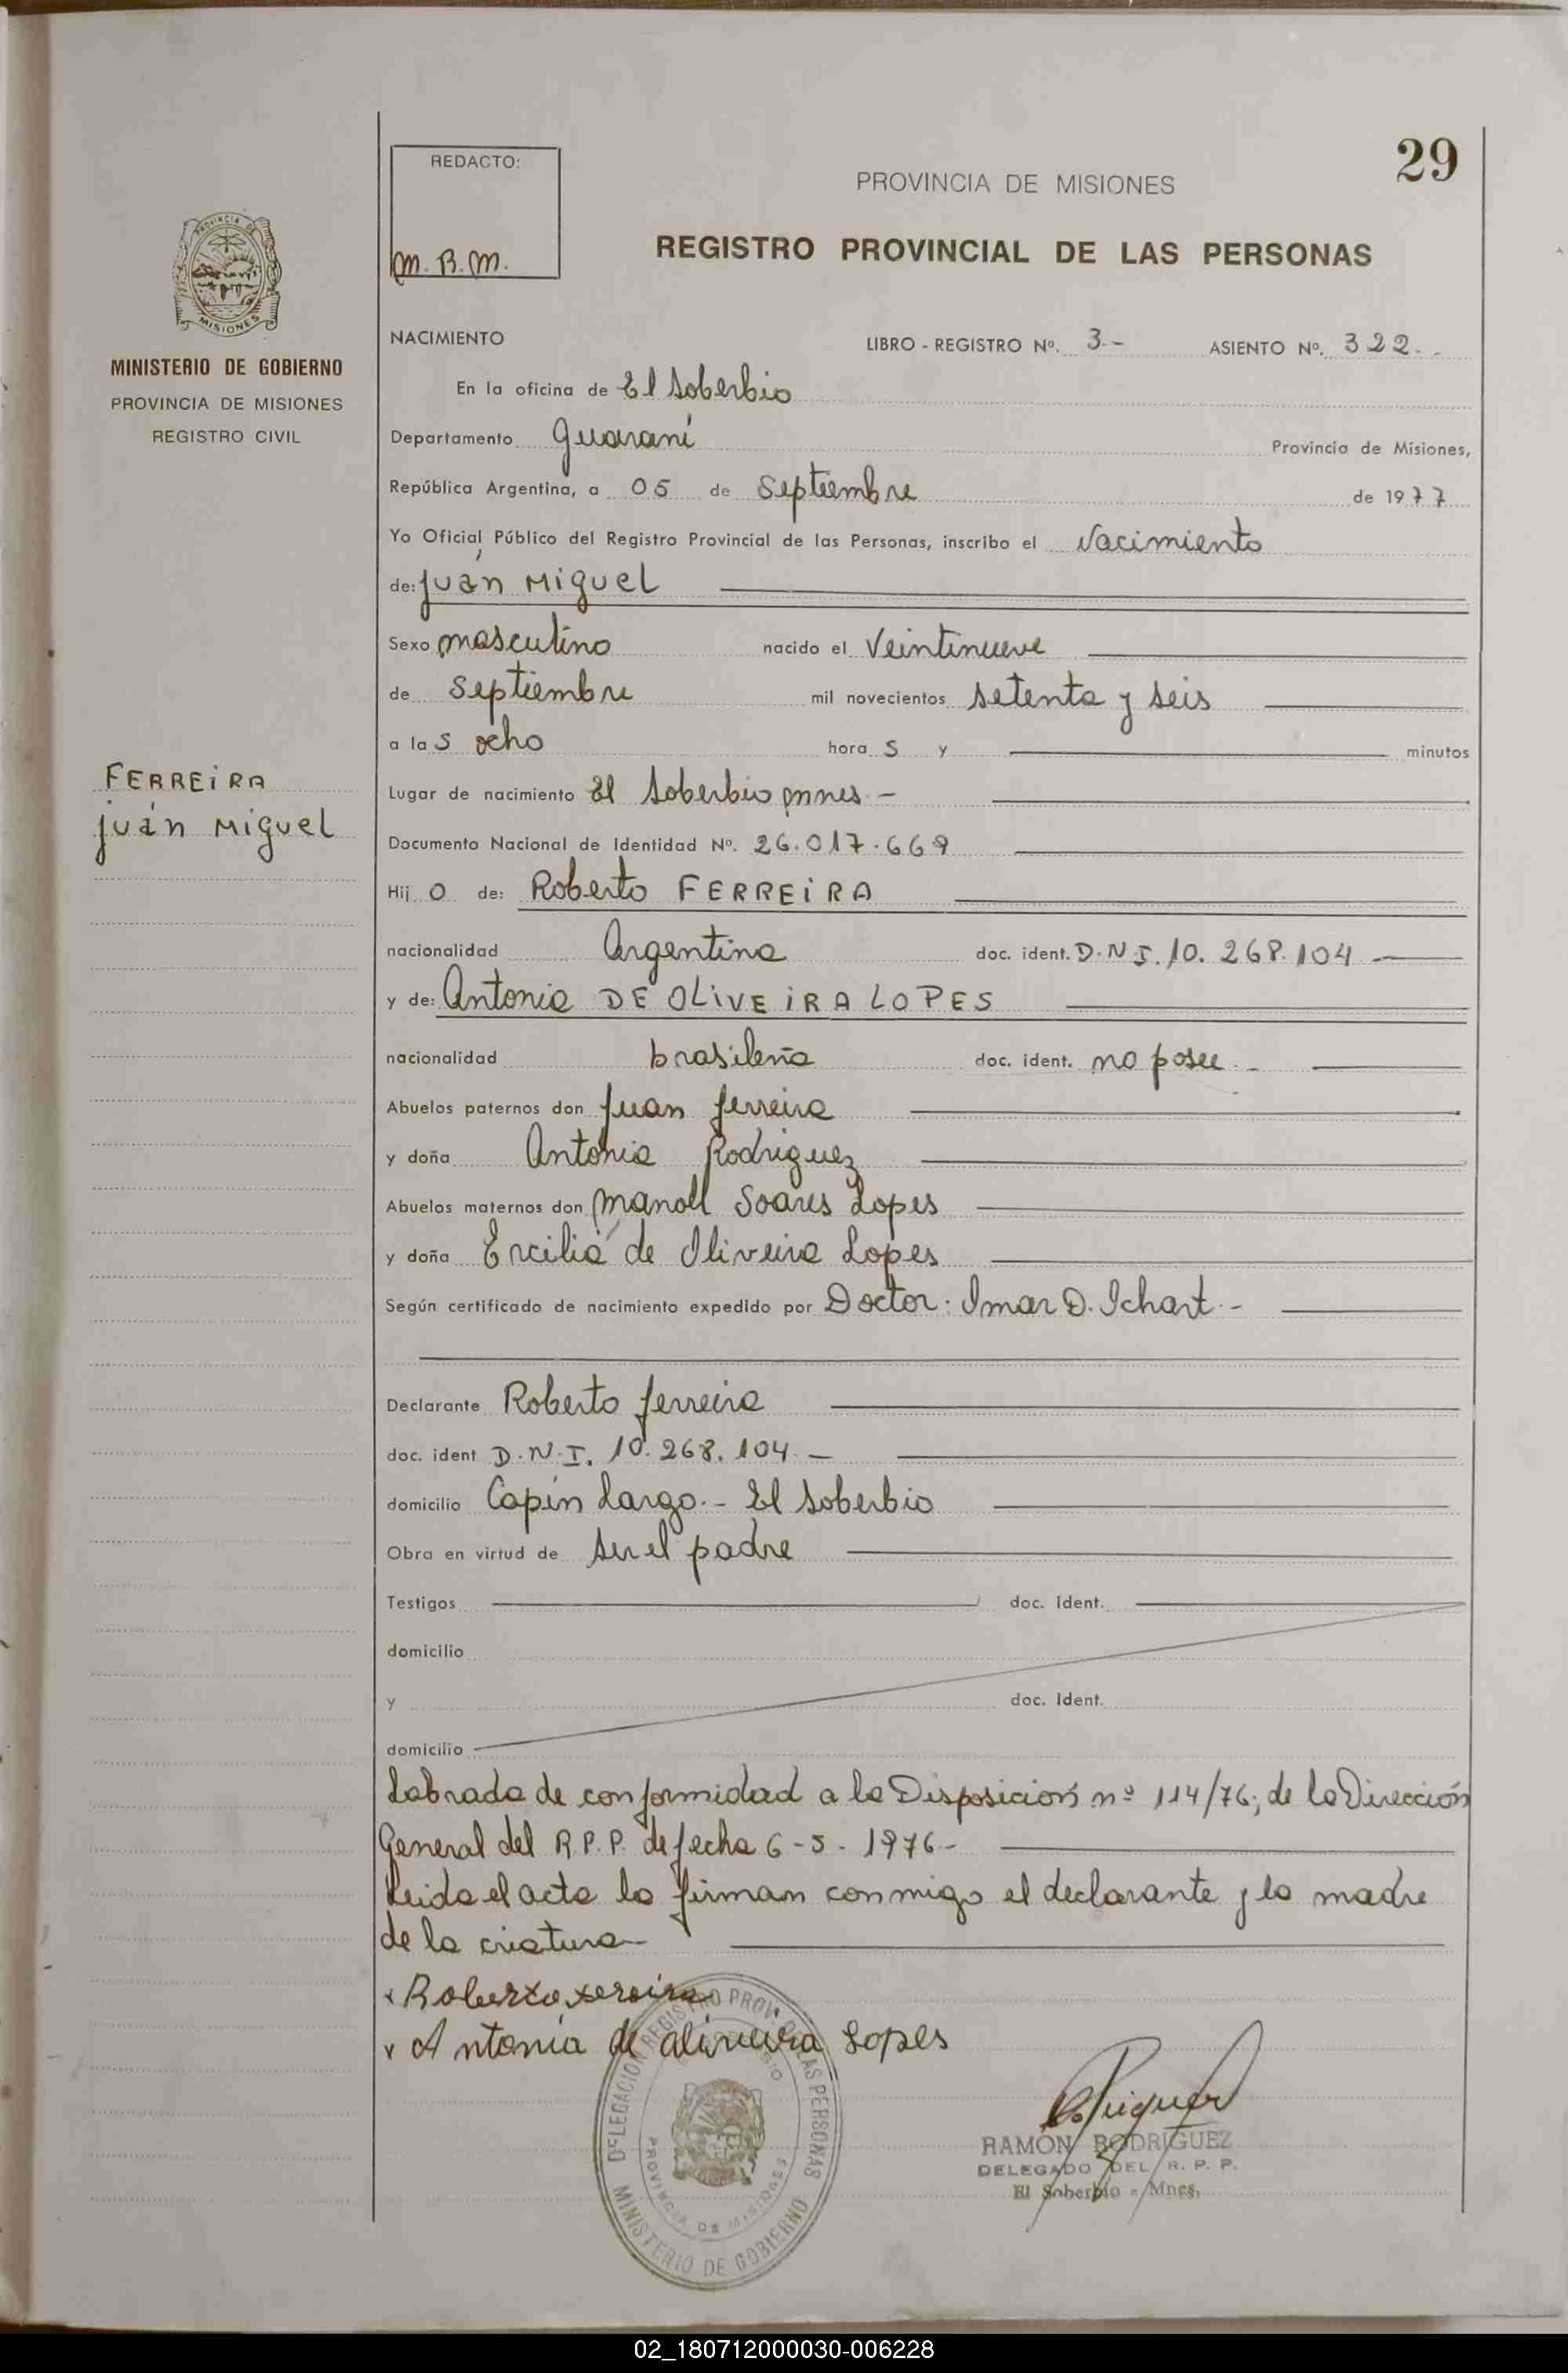 29
REDACTO:
M.B.M.
PROVINCIA DE MISIONES
REGISTRO PROVINCIAL DE LAS PERSONAS
PROVINCIA DE
MISIONES
MINISTERIO DE GOBIERNO
PROVINCIA DE MISIONES
REGISTRO CIVIL
NACIMIENTO LIBRO - REGISTRO Nº. 3.- ASIENTO Nº. 322.-
En la oficina de El Soberbio
Departamento Guaraní Provincia de Misiones,
República Argentina, a 05 de Septiembre de 1977
Yo Oficial Público del Registro Provincial de las Personas, inscribo el Nacimiento
de: Juán Miguel
Sexo masculino nacido el Veintinueve
de Septiembre mil novecientos setenta y seis
a las ocho horas y minutos
FERREIRA
Juán Miguel
Lugar de nacimiento El Soberbio mnes.-
Documento Nacional de Identidad Nº. 26.017.669
Hijo de: Roberto FERREIRA
nacionalidad Argentina doc. ident. D.N.I. 10.268.104
y de: Antonia DE OLIVEIRA LOPES
nacionalidad brasileña doc. ident. no posee.-
Abuelos paternos don Juan Ferreira
y doña Antonia Rodriguez
Abuelos maternos don Manoel Soares Lopes
y doña Ercilia de Oliveira Lopes
Según certificado de nacimiento expedido por Doctor: Imar D. Ichart.-
Declarante Roberto Ferreira
doc. ident D.N.I. 10.268.104.-
domicilio Capin Largo.- El Soberbio
Obra en virtud de ser el padre
Testigos doc. Ident.
domicilio
y doc. Ident.
domicilio
Labrada de conformidad a la Disposición nº 114/76, de la Dirección
General del R.P.P. de fecha 6-5-1976-
Leida el acta la firman conmigo el declarante y la madre
de la criatura-
x Roberto fereira
x Antonia de aliveira Lopes
DELEGACION REGISTRO PROV. DE LAS PERSONAS
PROVINCIA DE MISIONES
MINISTERIO DE GOBIERNO
RAMON RODRIGUEZ
DELEGADO DEL R. P. P.
El Soberbio - Mnes.
02_180712000030-006228